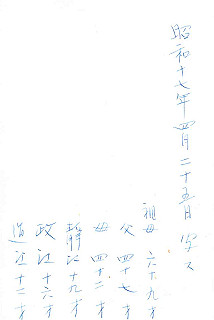 昭和十七年四月二十五日 写ス
祖母 六十九才
父 四十七才
母 四十二才
十九才
政江 十六才
道江 十二才